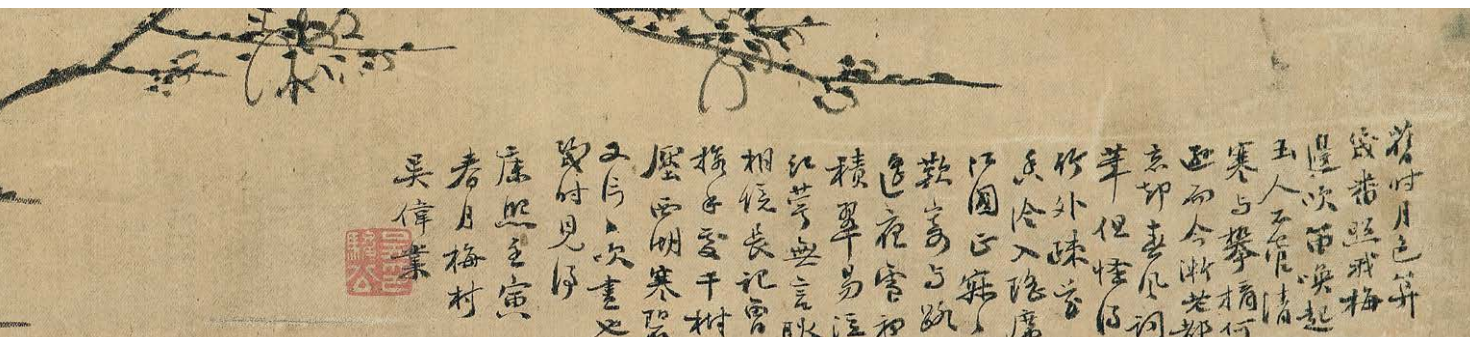 舊时月色算
幾番照我梅
邊吹笛喚起
玉人不管清
寒与攀摘何
遜而今漸老都
忘却春风词
筆但怪得
竹外疎花
香冷入瑶席
江國正寂々
歎寄与路
遥夜雪初
積翠易泣
红萼無言耿
相憶長記曾
携手處千樹
壓西湖寒碧
又片々吹盡也
幾时見得
康熙壬寅
春月梅村
吴偉業
駿公